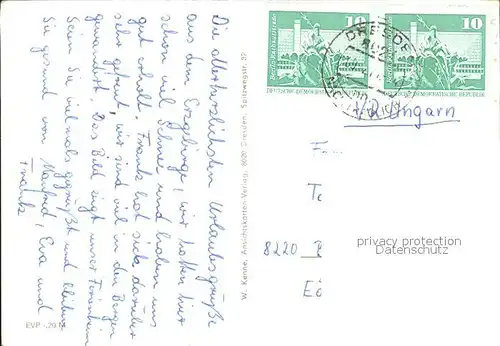 Die allerherzlichsten Urlaubsgrüße
aus dem Erzgebirge, wir hatten hier
schon viel Schnee und haben uns
gut erholt. Frank hat sich darüber
sehr gefreut, wir sind viel in den Bergen
gewandert. Das Bild zeigt unser Ferienheim
Seien Sie vielmals gegrüßt und bleiben
Sie gesund von Manfred, Eva und
Frank
EVP -.20 M
W. Kenne, Ansichtskarten-Verlag, 8020 Dresden, Spitzwegstr. 52
10
10
Berlin, Rathausstraße
DEUTSCHE DEMOKRATISCHE REPUBLIK
DRESDEN
Ungarn
8220
privacy protection
Datenschutz